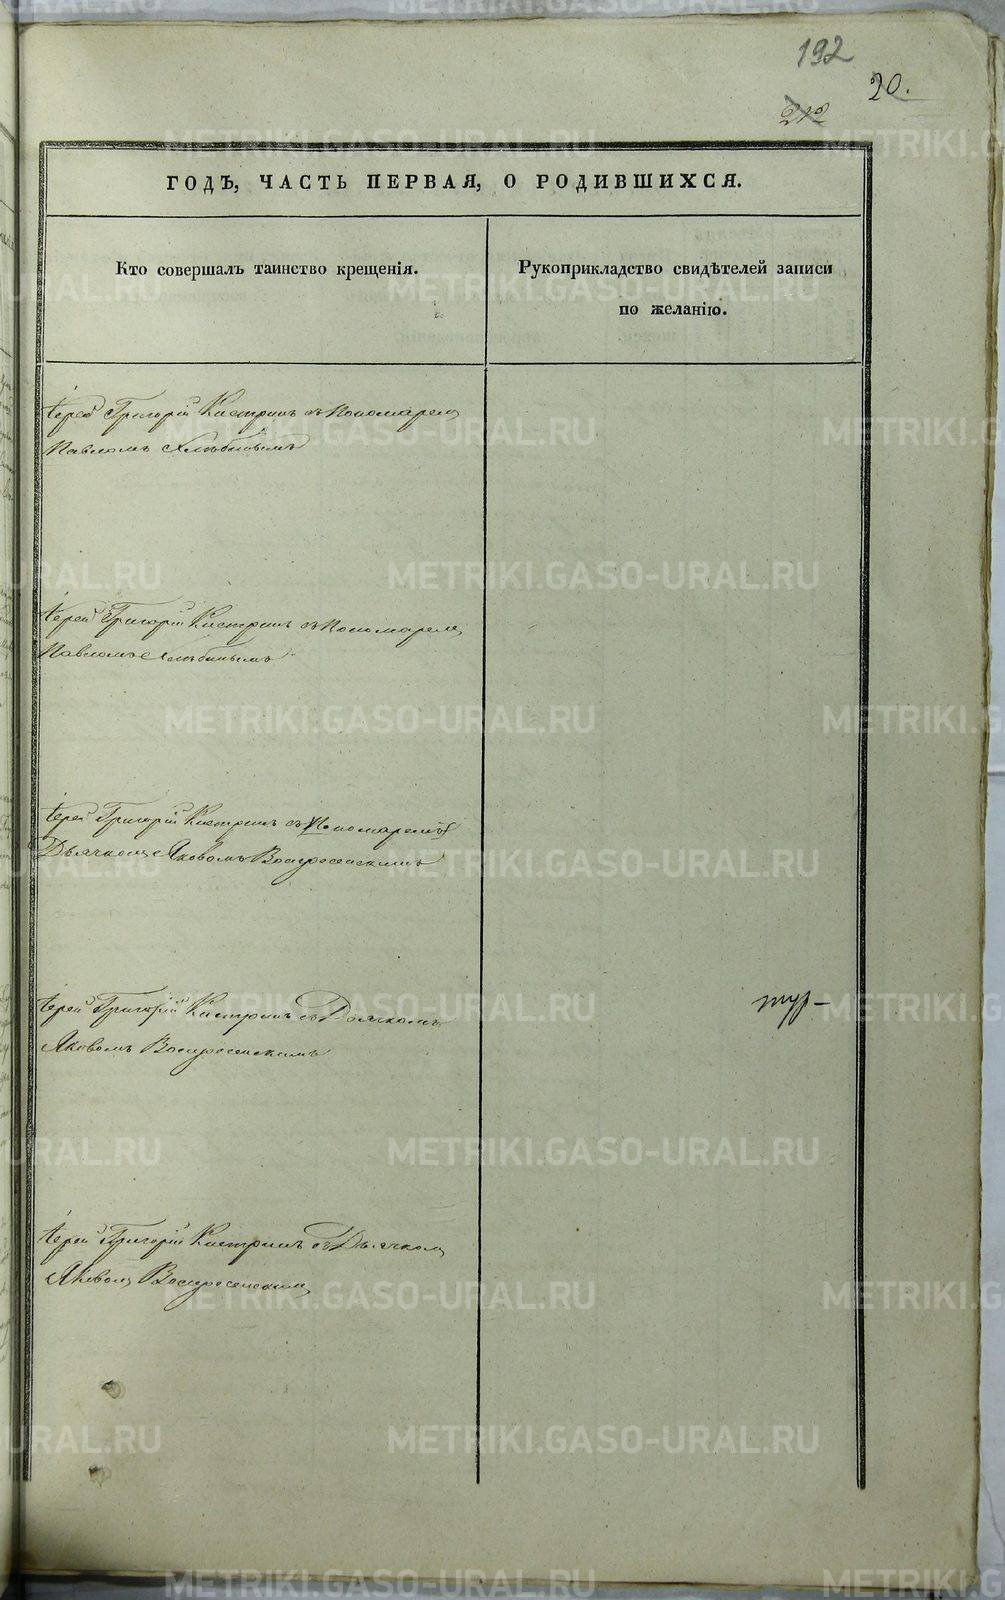 192
20.
212
ГОДЪ, ЧАСТЬ ПЕРВАЯ, О РОДИВШИХСЯ.
Кто совершалъ таинство крещенія.
Рукоприкладство свидѣтелей записи
по желанію.
Іерей Григорій Кастринъ съ Пономарем
Павломъ Хлѣбинымъ
Іерей Григорій Кастринъ съ Пономарем
Павломъ Хлѣбинымъ
Іерей Григорій Кастринъ съ Пономаремъ
Дьячкомъ Яковомъ Воскресенскимъ
Іерей Григорій Кастринъ съ Дьячкомъ
Яковомъ Воскресенскимъ
Іерей Григорій Кастринъ съ Дьячком
Яковом Воскресенским
METRIKI.GASO-URAL.RU